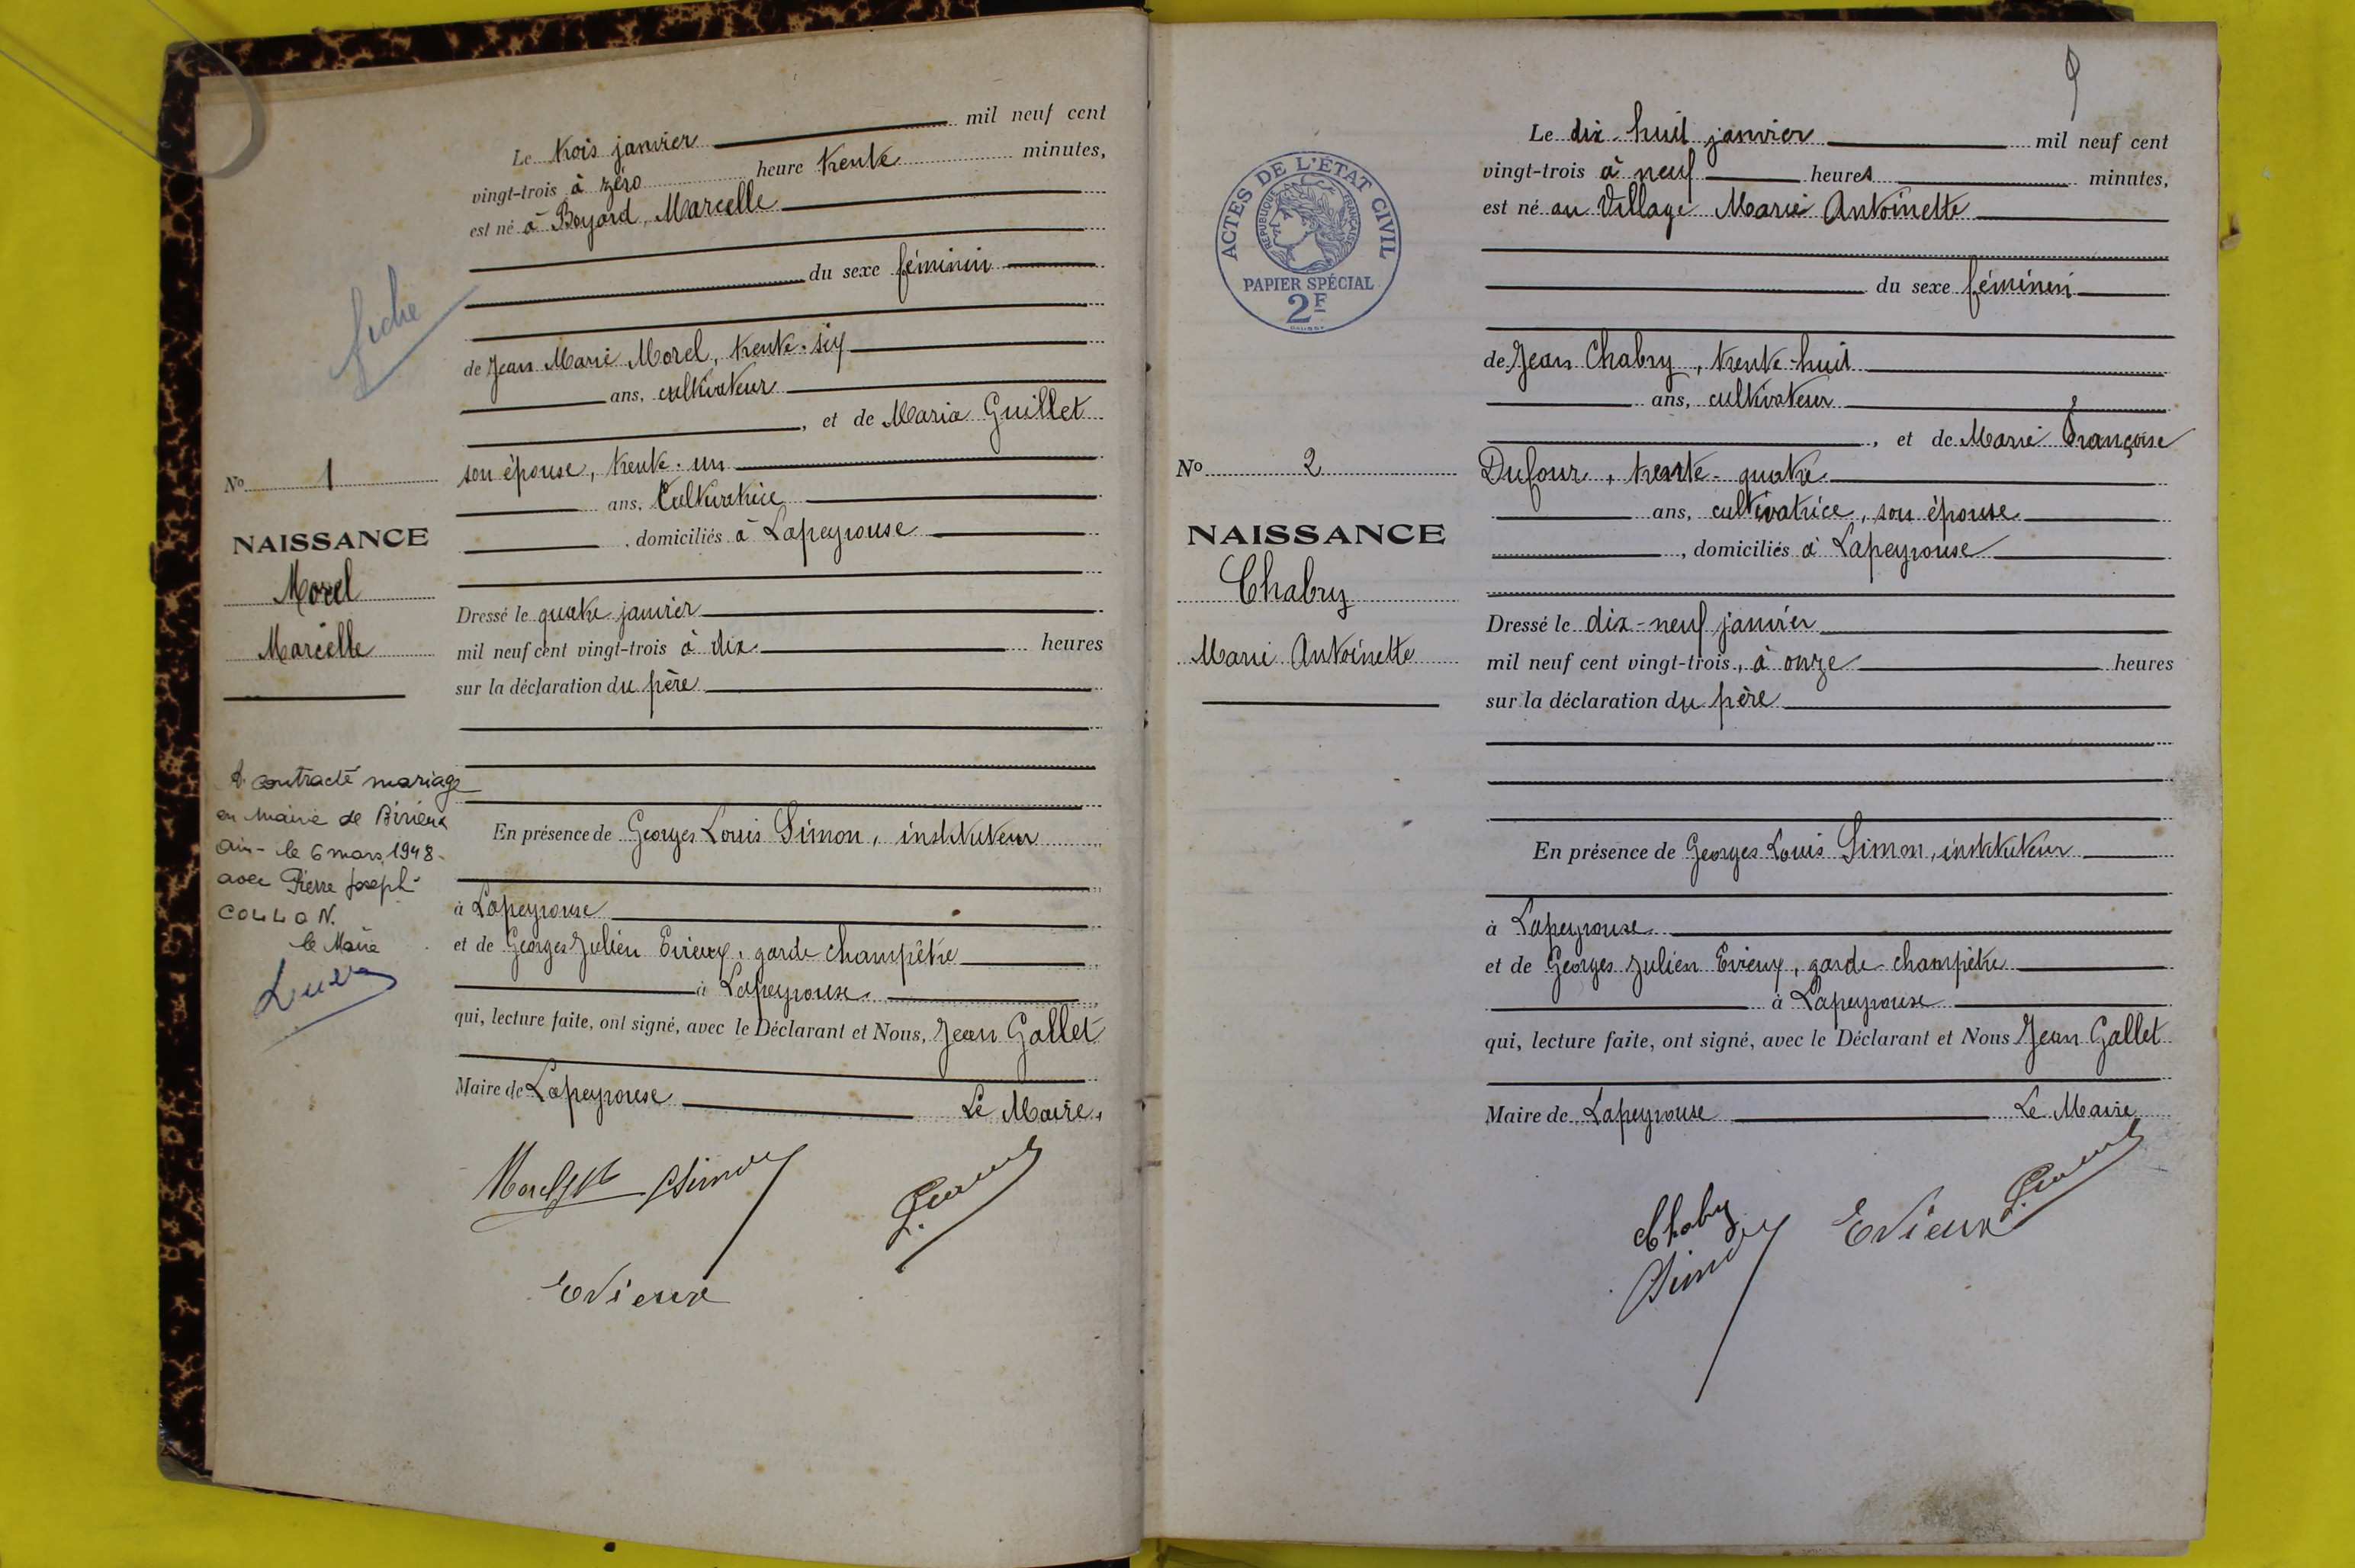 Le trois janvier mil neuf cent
vingt-trois à zéro heure trente minutes,
est né à Boyard, Marcelle
du sexe féminin
de Jean Marie Morel, trente-six
ans, cultivateur
, et de Maria Guillet
son épouse, trente-un
ans, Cultivatrice
, domiciliés à Lapeyrouse
Dressé le quatre janvier
mil neuf cent vingt-trois à dix heures
sur la déclaration du père
En présence de Georges Louis Simon, instituteur
à Lapeyrouse
et de Georges Julien Evieux, garde champêtre
à Lapeyrouse
qui, lecture faite, ont signé, avec le Déclarant et Nous, Jean Gallet
Maire de Lapeyrouse Le Maire,
Morel Simon
Evieux
fiche
No 1
NAISSANCE
Morel
Marcelle
A contracté mariage
en mairie de Birieux
Ain - le 6 mars 1948
avec Pierre Joseph
COLLON.
le Maire
9
ACTES DE L'ÉTAT CIVIL
RÉPUBLIQUE FRANÇAISE
PAPIER SPÉCIAL
2F
No 2
NAISSANCE
Chabry
Marie Antoinette
Le dix-huit janvier mil neuf cent
vingt-trois à neuf heures minutes,
est né au Village Marie Antoinette
du sexe féminin
de Jean Chabry, trente-huit
ans, cultivateur
, et de Marie Françoise
Dufour, trente-quatre
ans, cultivatrice, son épouse
, domiciliés à Lapeyrouse
Dressé le dix-neuf janvier
mil neuf cent vingt-trois, à onze heures
sur la déclaration du père
En présence de Georges Louis Simon, instituteur
à Lapeyrouse
et de Georges Julien Evieux, garde-champêtre
à Lapeyrouse
qui, lecture faite, ont signé, avec le Déclarant et Nous Jean Gallet
Maire de Lapeyrouse Le Maire
Chabry
Simon Evieux